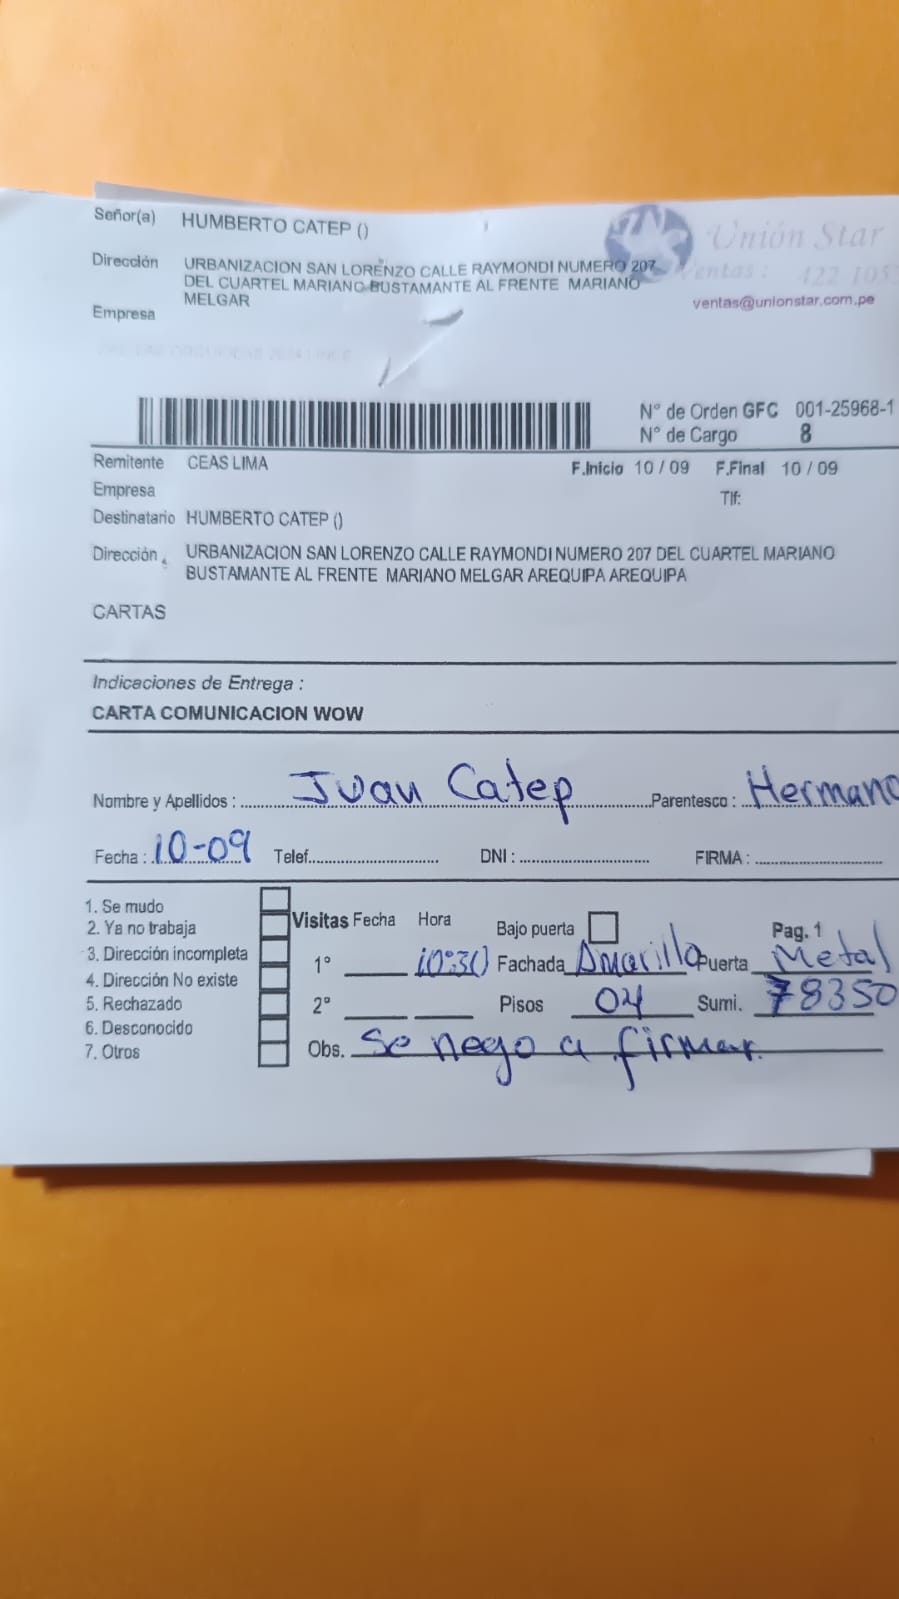 Señor(a) HUMBERTO CATEP ()
Unión Star
Dirección URBANIZACION SAN LORENZO CALLE RAYMONDI NUMERO 207
DEL CUARTEL MARIANO BUSTAMANTE AL FRENTE MARIANO
MELGAR
Ventas : 422 105
ventas@unionstar.com.pe
Empresa
N° de Orden GFC 001-25968-1
N° de Cargo 8
Remitente CEAS LIMA
F.Inicio 10 / 09 F.Final 10 / 09
Empresa
Tlf:
Destinatario HUMBERTO CATEP ()
Dirección URBANIZACION SAN LORENZO CALLE RAYMONDI NUMERO 207 DEL CUARTEL MARIANO
BUSTAMANTE AL FRENTE MARIANO MELGAR AREQUIPA AREQUIPA
CARTAS
Indicaciones de Entrega :
CARTA COMUNICACION WOW
Nombre y Apellidos : Juan Catep Parentesco : Hermano
Fecha : 10-09 Telef. DNI : FIRMA :
1. Se mudo
2. Ya no trabaja
3. Dirección incompleta
4. Dirección No existe
5. Rechazado
6. Desconocido
7. Otros
Visitas Fecha Hora Bajo puerta Pag. 1
1° 10:30 Fachada Amarilla Puerta Metal
2° Pisos 04 Sumi. 78350
Obs. Se nego a firmar.